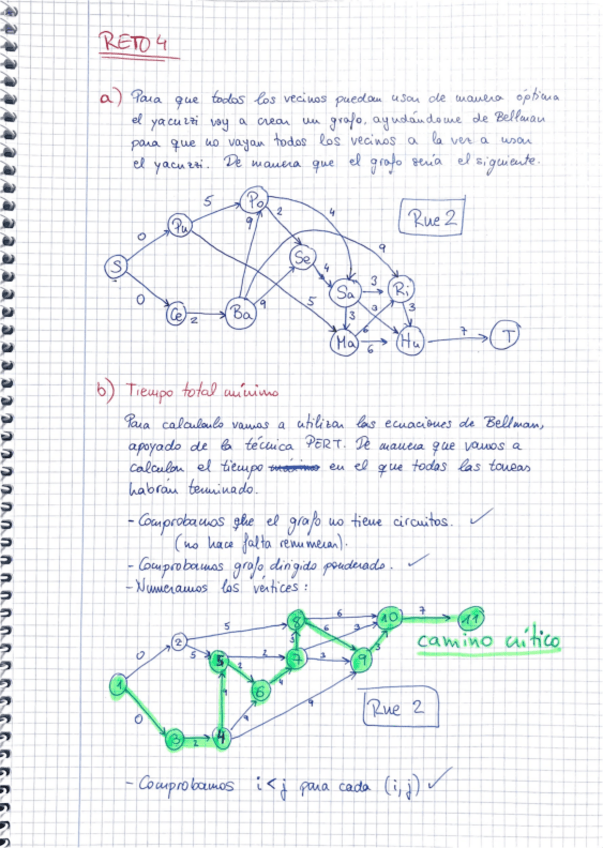 RETO 4
a) Para que todos los vecinos puedan usar de manera óptima
el yacuzzi voy a crear un grafo, ayudándome de Bellman
para que no vayan todos los vecinos a la vez a usar
el yacuzzi. De manera que el grafo sería el siguiente.
S 0 Pu 5 Po 2 4 9 Rue 2
0 Ce 2 Ba 9 9 Se 4 5
Sa 3 Ri 3 3 3
Ma 6 6 Hu 7 T
b) Tiempo total mínimo
Para calcularlo vamos a utilizar las ecuaciones de Bellman,
apoyado de la técnica PERT. De manera que vamos a
calcular el tiempo en el que todas las tareas
habrán terminado.
- Comprobamos que el grafo no tiene circuitos. ✓
(no hace falta renumerar).
- Comprobamos grafo dirigido ponderado. ✓
- Numeramos los vértices:
8 6 10 7 11
camino crítico
0 2 5 5 5 2 7 3 6 3 9 3
1 0 3 2 4 9 9 2 6 4 9
Rue 2
- Comprobamos i < j para cada (i,j) ✓